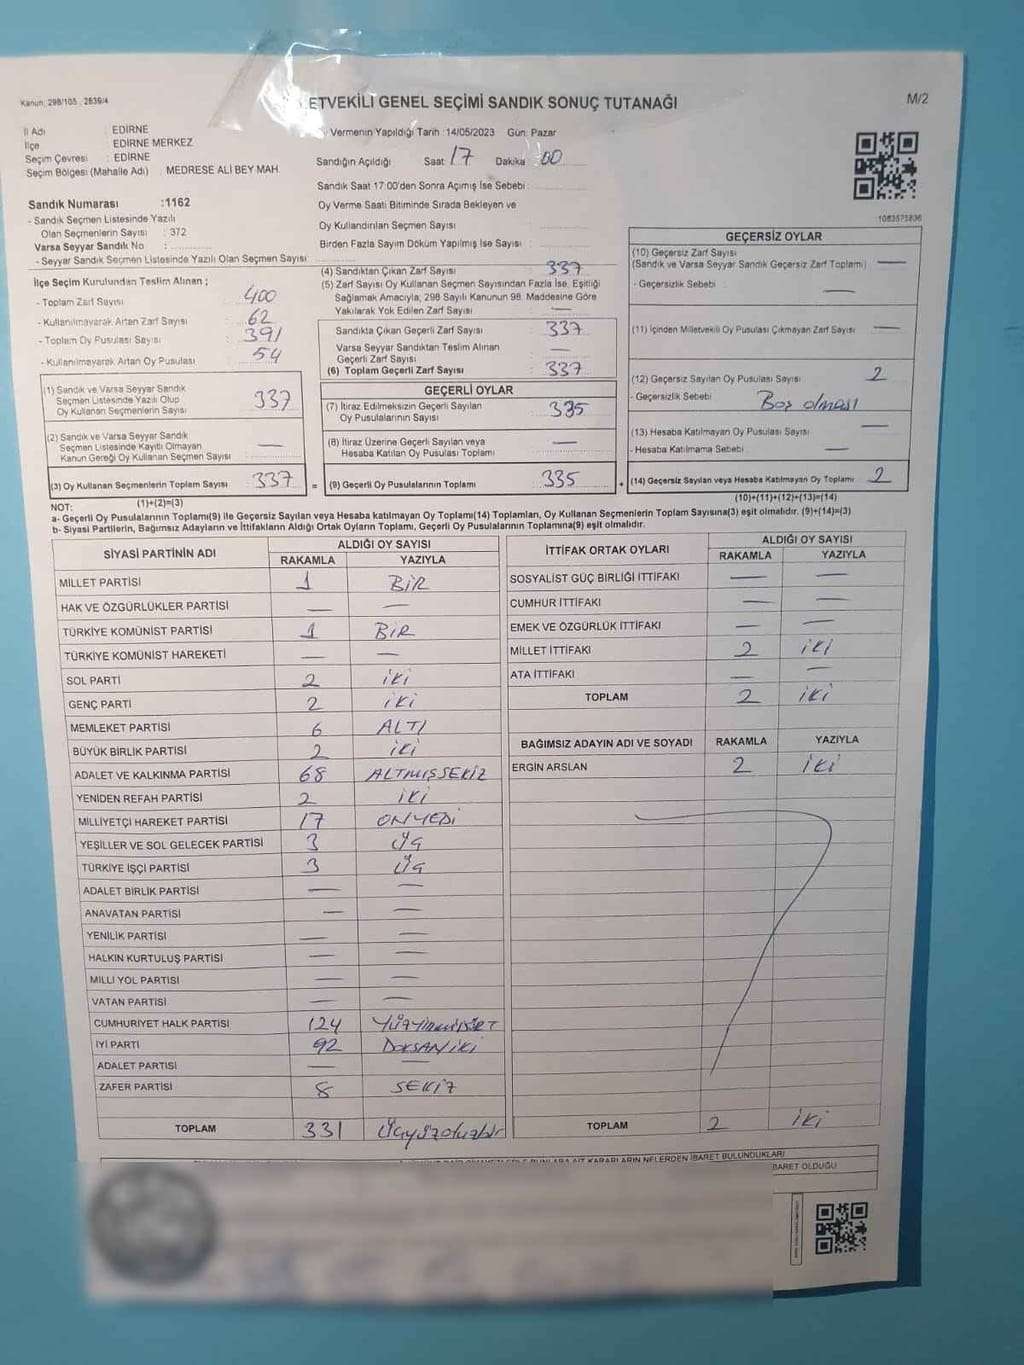 Kanun: 298/105 , 2839/4
LETVEKİLİ GENEL SEÇİMİ SANDIK SONUÇ TUTANAĞI
M/2
İl Adı : EDİRNE
İlçe : EDİRNE MERKEZ
Seçim Çevresi : EDİRNE
Seçim Bölgesi (Mahalle Adı) : MEDRESE ALİ BEY MAH.
Vermenin Yapıldığı Tarih : 14/05/2023 Gün: Pazar
Sandığın Açıldığı Saat 17 Dakika : 00
Sandık Saat 17:00'den Sonra Açımış İse Sebebi :
Oy Verme Saati Bitiminde Sırada Bekleyen ve
Oy Kullandırılan Seçmen Sayısı :
Birden Fazla Sayım Döküm Yapılmış İse Sayısı :
1083575836
Sandık Numarası :1162
- Sandık Seçmen Listesinde Yazılı
Olan Seçmenlerin Sayısı : 372
Varsa Seyyar Sandık No :
- Seyyar Sandık Seçmen Listesinde Yazılı Olan Seçmen Sayısı:
İlçe Seçim Kurulundan Teslim Alınan ;
- Toplam Zarf Sayısı : 400
- Kullanılmayarak Artan Zarf Sayısı : 62
- Toplam Oy Pusulası Sayısı : 391
- Kullanılmayarak Artan Oy Pusulası : 54
(1) Sandık ve Varsa Seyyar Sandık
Seçmen Listesinde Yazılı Olup
Oy Kullanan Seçmenlerin Sayısı : 337
(2) Sandık ve Varsa Seyyar Sandık
Seçmen Listesinde Kayıtlı Olmayan
Kanun Gereği Oy Kullanan Seçmen Sayısı : —
(3) Oy Kullanan Seçmenlerin Toplam Sayısı : 337 =
(1)+(2)=(3)
(4) Sandıktan Çıkan Zarf Sayısı : 337
(5) Zarf Sayısı Oy Kullanan Seçmen Sayısından Fazla İse, Eşitliği
Sağlamak Amacıyla; 298 Sayılı Kanunun 98. Maddesine Göre
Yakılarak Yok Edilen Zarf Sayısı : —
Sandıkta Çıkan Geçerli Zarf Sayısı : 337
Varsa Seyyar Sandıktan Teslim Alınan
Geçerli Zarf Sayısı : —
(6) Toplam Geçerli Zarf Sayısı : 337
GEÇERLİ OYLAR
(7) İtiraz Edilmeksizin Geçerli Sayılan
Oy Pusulalarının Sayısı : 335
(8) İtiraz Üzerine Geçerli Sayılan veya
Hesaba Katılan Oy Pusulası Toplamı : —
(9) Geçerli Oy Pusulalarının Toplamı : 335 +
GEÇERSİZ OYLAR
(10) Geçersiz Zarf Sayısı
(Sandık ve Varsa Seyyar Sandık Geçersiz Zarf Toplamı) : —
- Geçersizlik Sebebi : —
(11) İçinden Milletvekili Oy Pusulası Çıkmayan Zarf Sayısı : —
(12) Geçersiz Sayılan Oy Pusulası Sayısı : 2
- Geçersizlik Sebebi : Boş olması
(13) Hesaba Katılmayan Oy Pusulası Sayısı : —
- Hesaba Katılmama Sebebi : —
(14) Geçersiz Sayılan veya Hesaba Katılmayan Oy Toplamı : 2
(10)+(11)+(12)+(13)=(14)
NOT:
a- Geçerli Oy Pusulalarının Toplamı(9) ile Geçersiz Sayılan veya Hesaba katılmayan Oy Toplamı(14) Toplamları, Oy Kullanan Seçmenlerin Toplam Sayısına(3) eşit olmalıdır. (9)+(14)=(3)
b- Siyasi Partilerin, Bağımsız Adayların ve İttifakların Aldığı Ortak Oyların Toplamı, Geçerli Oy Pusulalarının Toplamına(9) eşit olmalıdır.
SİYASİ PARTİNİN ADI ALDIĞI OY SAYISI
RAKAMLA YAZIYLA
MİLLET PARTİSİ 1 BİR
HAK VE ÖZGÜRLÜKLER PARTİSİ — —
TÜRKİYE KOMÜNİST PARTİSİ 1 BİR
TÜRKİYE KOMÜNİST HAREKETİ — —
SOL PARTİ 2 İKİ
GENÇ PARTİ 2 İKİ
MEMLEKET PARTİSİ 6 ALTI
BÜYÜK BİRLİK PARTİSİ 2 İKİ
ADALET VE KALKINMA PARTİSİ 68 ALTMIŞSEKİZ
YENİDEN REFAH PARTİSİ 2 İKİ
MİLLİYETÇİ HAREKET PARTİSİ 17 ONYEDİ
YEŞİLLER VE SOL GELECEK PARTİSİ 3 Üç
TÜRKİYE İŞÇİ PARTİSİ 3 Üç
ADALET BİRLİK PARTİSİ — —
ANAVATAN PARTİSİ — —
YENİLİK PARTİSİ — —
HALKIN KURTULUŞ PARTİSİ — —
MİLLİ YOL PARTİSİ — —
VATAN PARTİSİ — —
CUMHURİYET HALK PARTİSİ 124 YÜZYİRMİDÖRT
İYİ PARTİ 92 DOKSANİKİ
ADALET PARTİSİ — —
ZAFER PARTİSİ 8 SEKİZ
TOPLAM 331 Üçyüzotuzbir
İTTİFAK ORTAK OYLARI ALDIĞI OY SAYISI
RAKAMLA YAZIYLA
SOSYALİST GÜÇ BİRLİĞİ İTTİFAKI — —
CUMHUR İTTİFAKI — —
EMEK VE ÖZGÜRLÜK İTTİFAKI — —
MİLLET İTTİFAKI 2 İKİ
ATA İTTİFAKI — —
TOPLAM 2 İKİ
BAĞIMSIZ ADAYIN ADI VE SOYADI RAKAMLA YAZIYLA
ERGİN ARSLAN 2 İKİ
TOPLAM 2 İKİ
KARARLARIN NELERDEN İBARET BULUNDUKLARI
BARET OLDUĞU